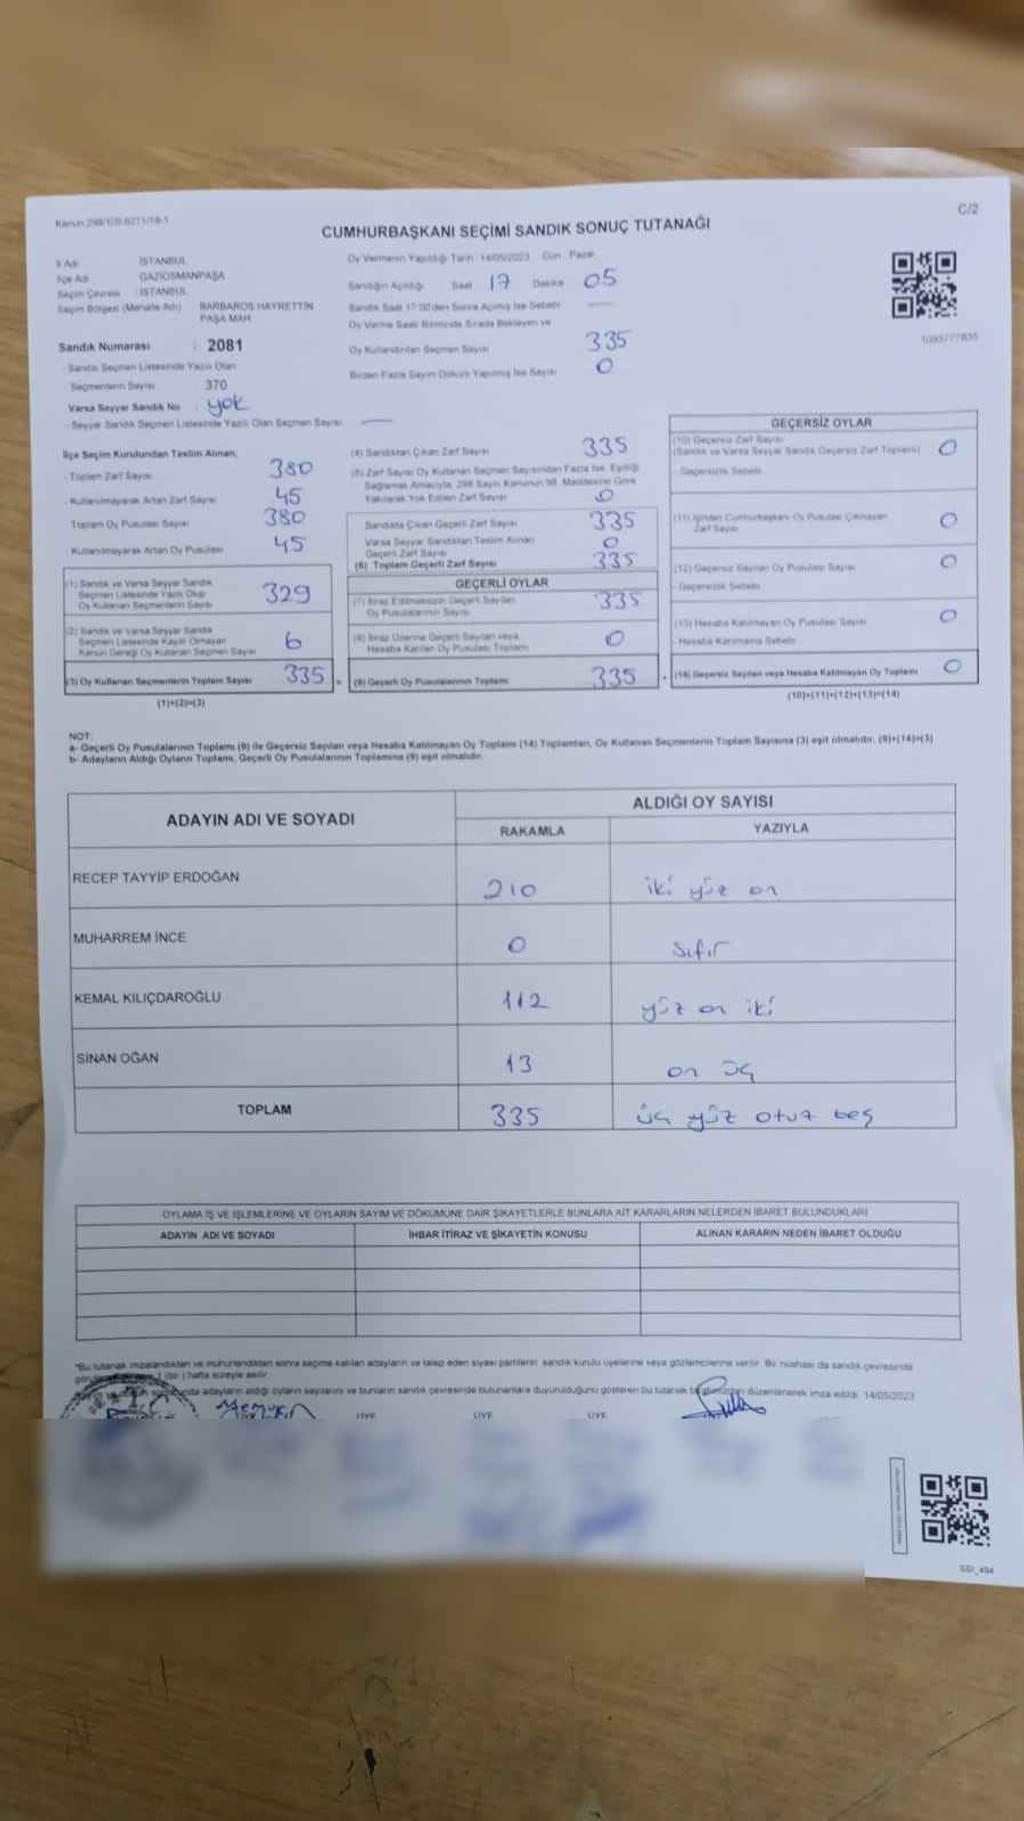 C/2
CUMHURBAŞKANI SEÇİMİ SANDIK SONUÇ TUTANAĞI
İl Adı İSTANBUL
İlçe Adı GAZİOSMANPAŞA
Seçim Çevresi İSTANBUL
Seçim Bölgesi (Mahalle Adı) BARBAROS HAYRETTİN PAŞA MAH
Sandık Numarası : 2081
Sandık Seçmen Listesinde Yazılı Olan
Seçmenlerin Sayısı 370
Varsa Seyyar Sandık No : yok
- Seyyar Sandık Seçmen Listesinde Yazılı Olan Seçmen Sayısı
Oy Vermenin Yapıldığı Tarih 14/05/2023 Gün Pazar
Sandığın Açıldığı Saat 17 Dakika 05
Sandık Saat 17:00'den Sonra Açılmış İse Sebebi
Oy Verme Saati Bitiminde Sırada Bekleyen ve
Oy Kullandırılan Seçmen Sayısı 335
Birden Fazla Sayım Döküm Yapılmış İse Sayısı 0
İlçe Seçim Kurulundan Teslim Alınan,
- Toplam Zarf Sayısı 380
- Kullanılmayarak Artan Zarf Sayısı 45
Toplam Oy Pusulası Sayısı 380
- Kullanılmayarak Artan Oy Pusulası 45
(1) Sandık ve Varsa Seyyar Sandık
Seçmen Listesinde Yazılı Olup
Oy Kullanan Seçmenlerin Sayısı 329
(2) Sandık ve varsa Seyyar Sandık
Seçmen Listesinde Kayıtlı Olmayan
Kanun Gereği Oy Kullanan Seçmen Sayısı 6
(3) Oy Kullanan Seçmenlerin Toplam Sayısı 335
(1)+(2)=(3)
(4) Sandıktan Çıkan Zarf Sayısı 335
(5) Zarf Sayısı Oy Kullanan Seçmen Sayısından Fazla İse, Eşitliği
Sağlamak Amacıyla, 298 Sayılı Kanunun 98. Maddesine Göre
Yakılarak Yok Edilen Zarf Sayısı 0
Sandıkta Çıkan Geçerli Zarf Sayısı 335
Varsa Seyyar Sandıktan Teslim Alınan
Geçerli Zarf Sayısı 0
(6) Toplam Geçerli Zarf Sayısı 335
GEÇERLİ OYLAR
(7) İtiraz Edilmeksizin Geçerli Sayılan
Oy Pusulalarının Sayısı 335
(8) İtiraz Üzerine Geçerli Sayılan veya
Hesaba Katılan Oy Pusulası Toplamı 0
(9) Geçerli Oy Pusulalarının Toplamı 335
GEÇERSİZ OYLAR
(10) Geçersiz Zarf Sayısı
(Sandık ve Varsa Seyyar Sandık Geçersiz Zarf Toplamı) 0
- Geçersizlik Sebebi
(11) İçinden Cumhurbaşkanı Oy Pusulası Çıkmayan
Zarf Sayısı 0
(12) Geçersiz Sayılan Oy Pusulası Sayısı 0
- Geçersizlik Sebebi
(13) Hesaba Katılmayan Oy Pusulası Sayısı 0
- Hesaba Katılmama Sebebi
(14) Geçersiz Sayılan veya Hesaba Katılmayan Oy Toplamı 0
(10)+(11)+(12)+(13)=(14)
NOT:
a- Geçerli Oy Pusulalarının Toplamı (9) ile Geçersiz Sayılan veya Hesaba Katılmayan Oy Toplamı (14) Toplamları, Oy Kullanan Seçmenlerin Toplam Sayısına (3) eşit olmalıdır. (9)+(14)=(3)
b- Adayların Aldığı Oyların Toplamı, Geçerli Oy Pusulalarının Toplamına (9) eşit olmalıdır.
ADAYIN ADI VE SOYADI ALDIĞI OY SAYISI
RAKAMLA YAZIYLA
RECEP TAYYİP ERDOĞAN 210 iki yüz on
MUHARREM İNCE 0 sıfır
KEMAL KILIÇDAROĞLU 112 yüz on iki
SİNAN OĞAN 13 on üç
TOPLAM 335 üç yüz otuz beş
OYLAMA İŞ VE İŞLEMLERİNE VE OYLARIN SAYIM VE DÖKÜMÜNE DAİR ŞİKAYETLERLE BUNLARA AİT KARARLARIN NELERDEN İBARET BULUNDUKLARI
ADAYIN ADI VE SOYADI İHBAR İTİRAZ VE ŞİKAYETİN KONUSU ALINAN KARARIN NEDEN İBARET OLDUĞU
*Bu tutanak imzalandıktan ve mühürlendikten sonra seçime katılan adayların ve talep eden siyasi partilerin sandık kurulu üyelerine veya gözlemcilerine verilir. Bu nüshası da sandık çevresinde
1 (bir) hafta süreyle asılır.
adayların aldığı oyların sayılarını ve bunların sandık çevresinde bulunanlara duyurulduğunu gösteren bu tutanak düzenlenerek imza edildi. 14/05/2023
ÜYE ÜYE ÜYE